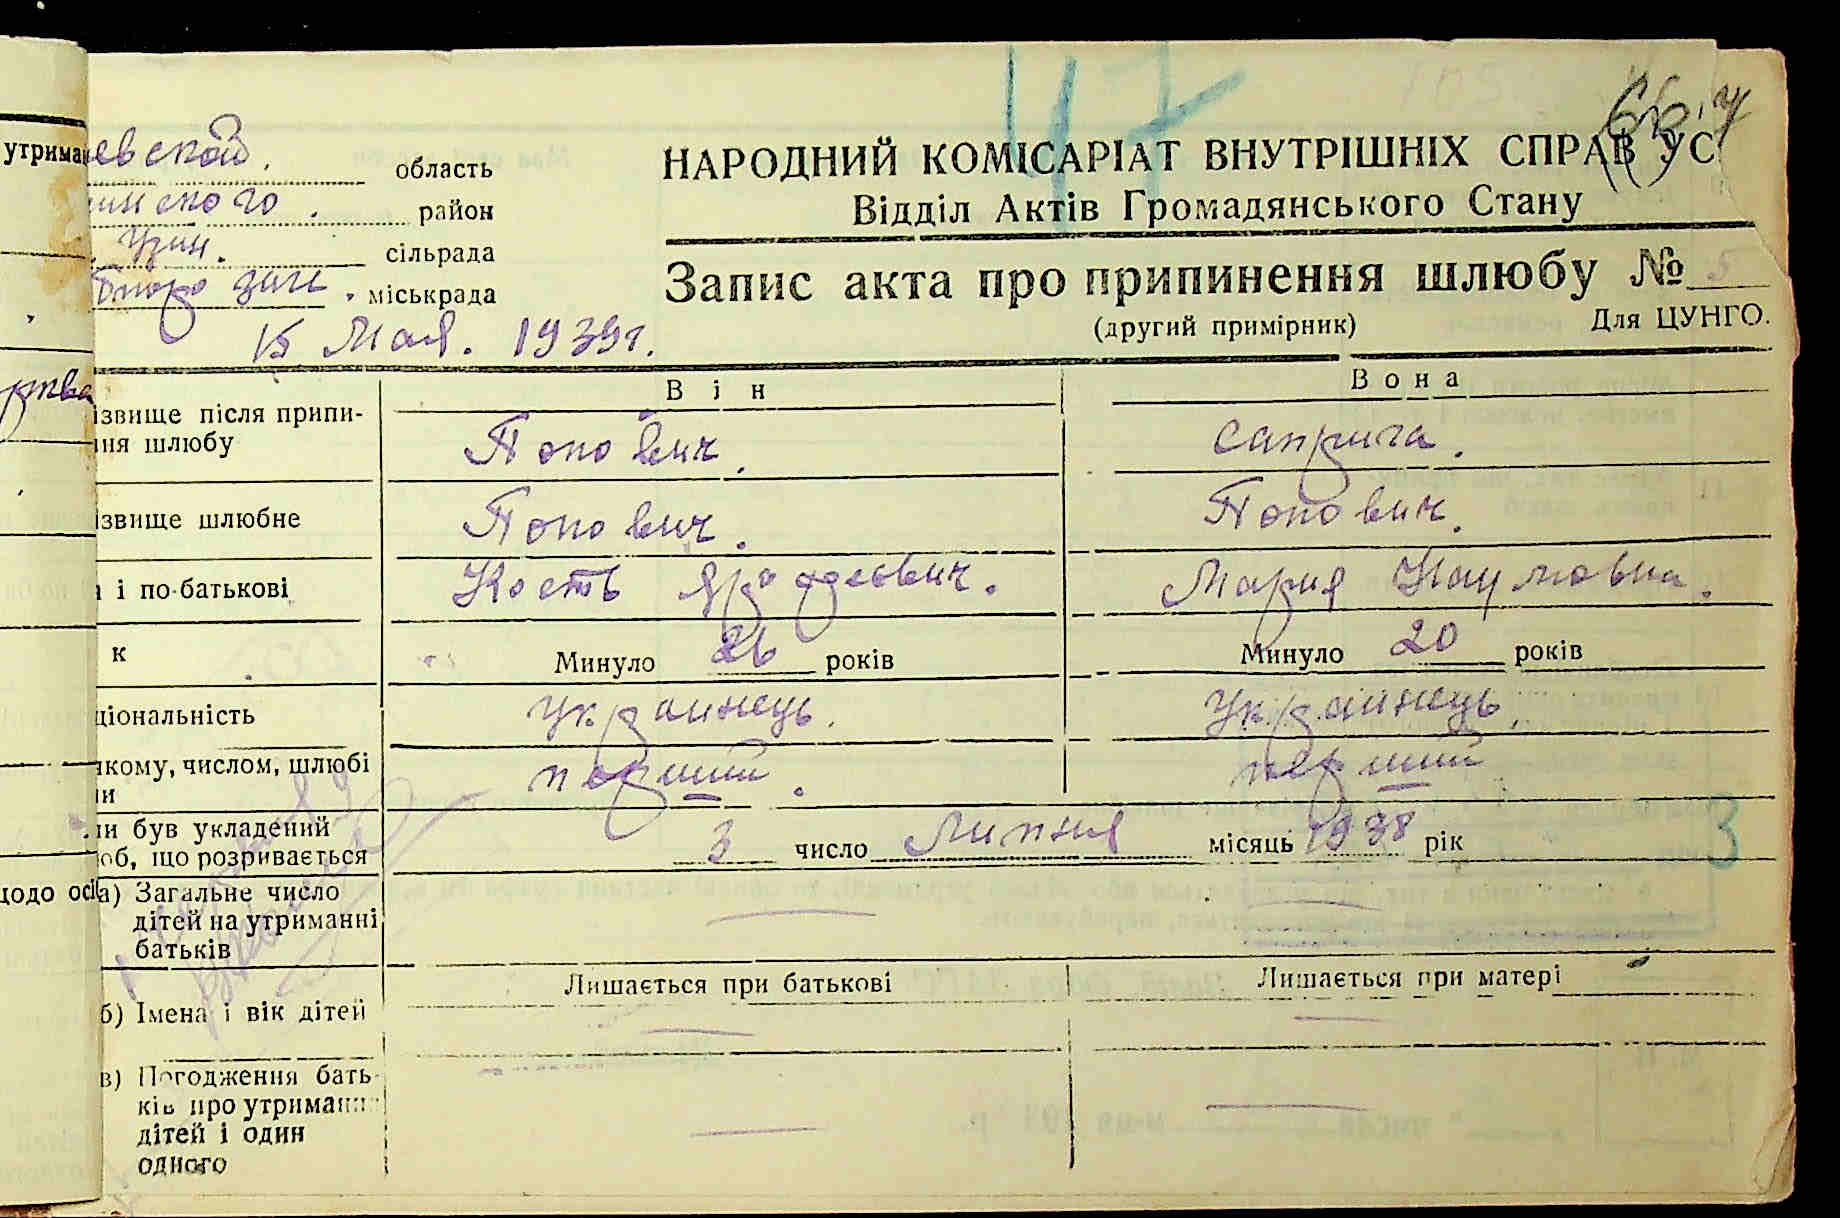 47
утрима
евской. область
инского. район
Узин. сільрада
міськрада
15 Мая. 1939г.
НАРОДНИЙ КОМІСАРІАТ ВНУТРІШНІХ СПРАВ УС
Відділ Актів Громадянського Стану
Запис акта про припинення шлюбу № 5
(другий примірник) Для ЦУНГО.
Він Вона
ізвище після припи-
ня шлюбу Попович. Саприга.
ізвище шлюбне Попович. Попович.
і по-батькові Кость Мария Наумовна.
к Минуло 26 років Минуло 20 років
ціональність Украинець. Украинець.
якому, числом, шлюбі
и перший. перший
ли був укладений
об, що розривається 3 число Липня місяць 1938 рік
3
щодо осі
а) Загальне число
дітей на утриманні
батьків
Лишається при батькові Лишається при матері
б) Імена і вік дітей
в) Погодження бать-
ків про утримання
дітей і один
одного